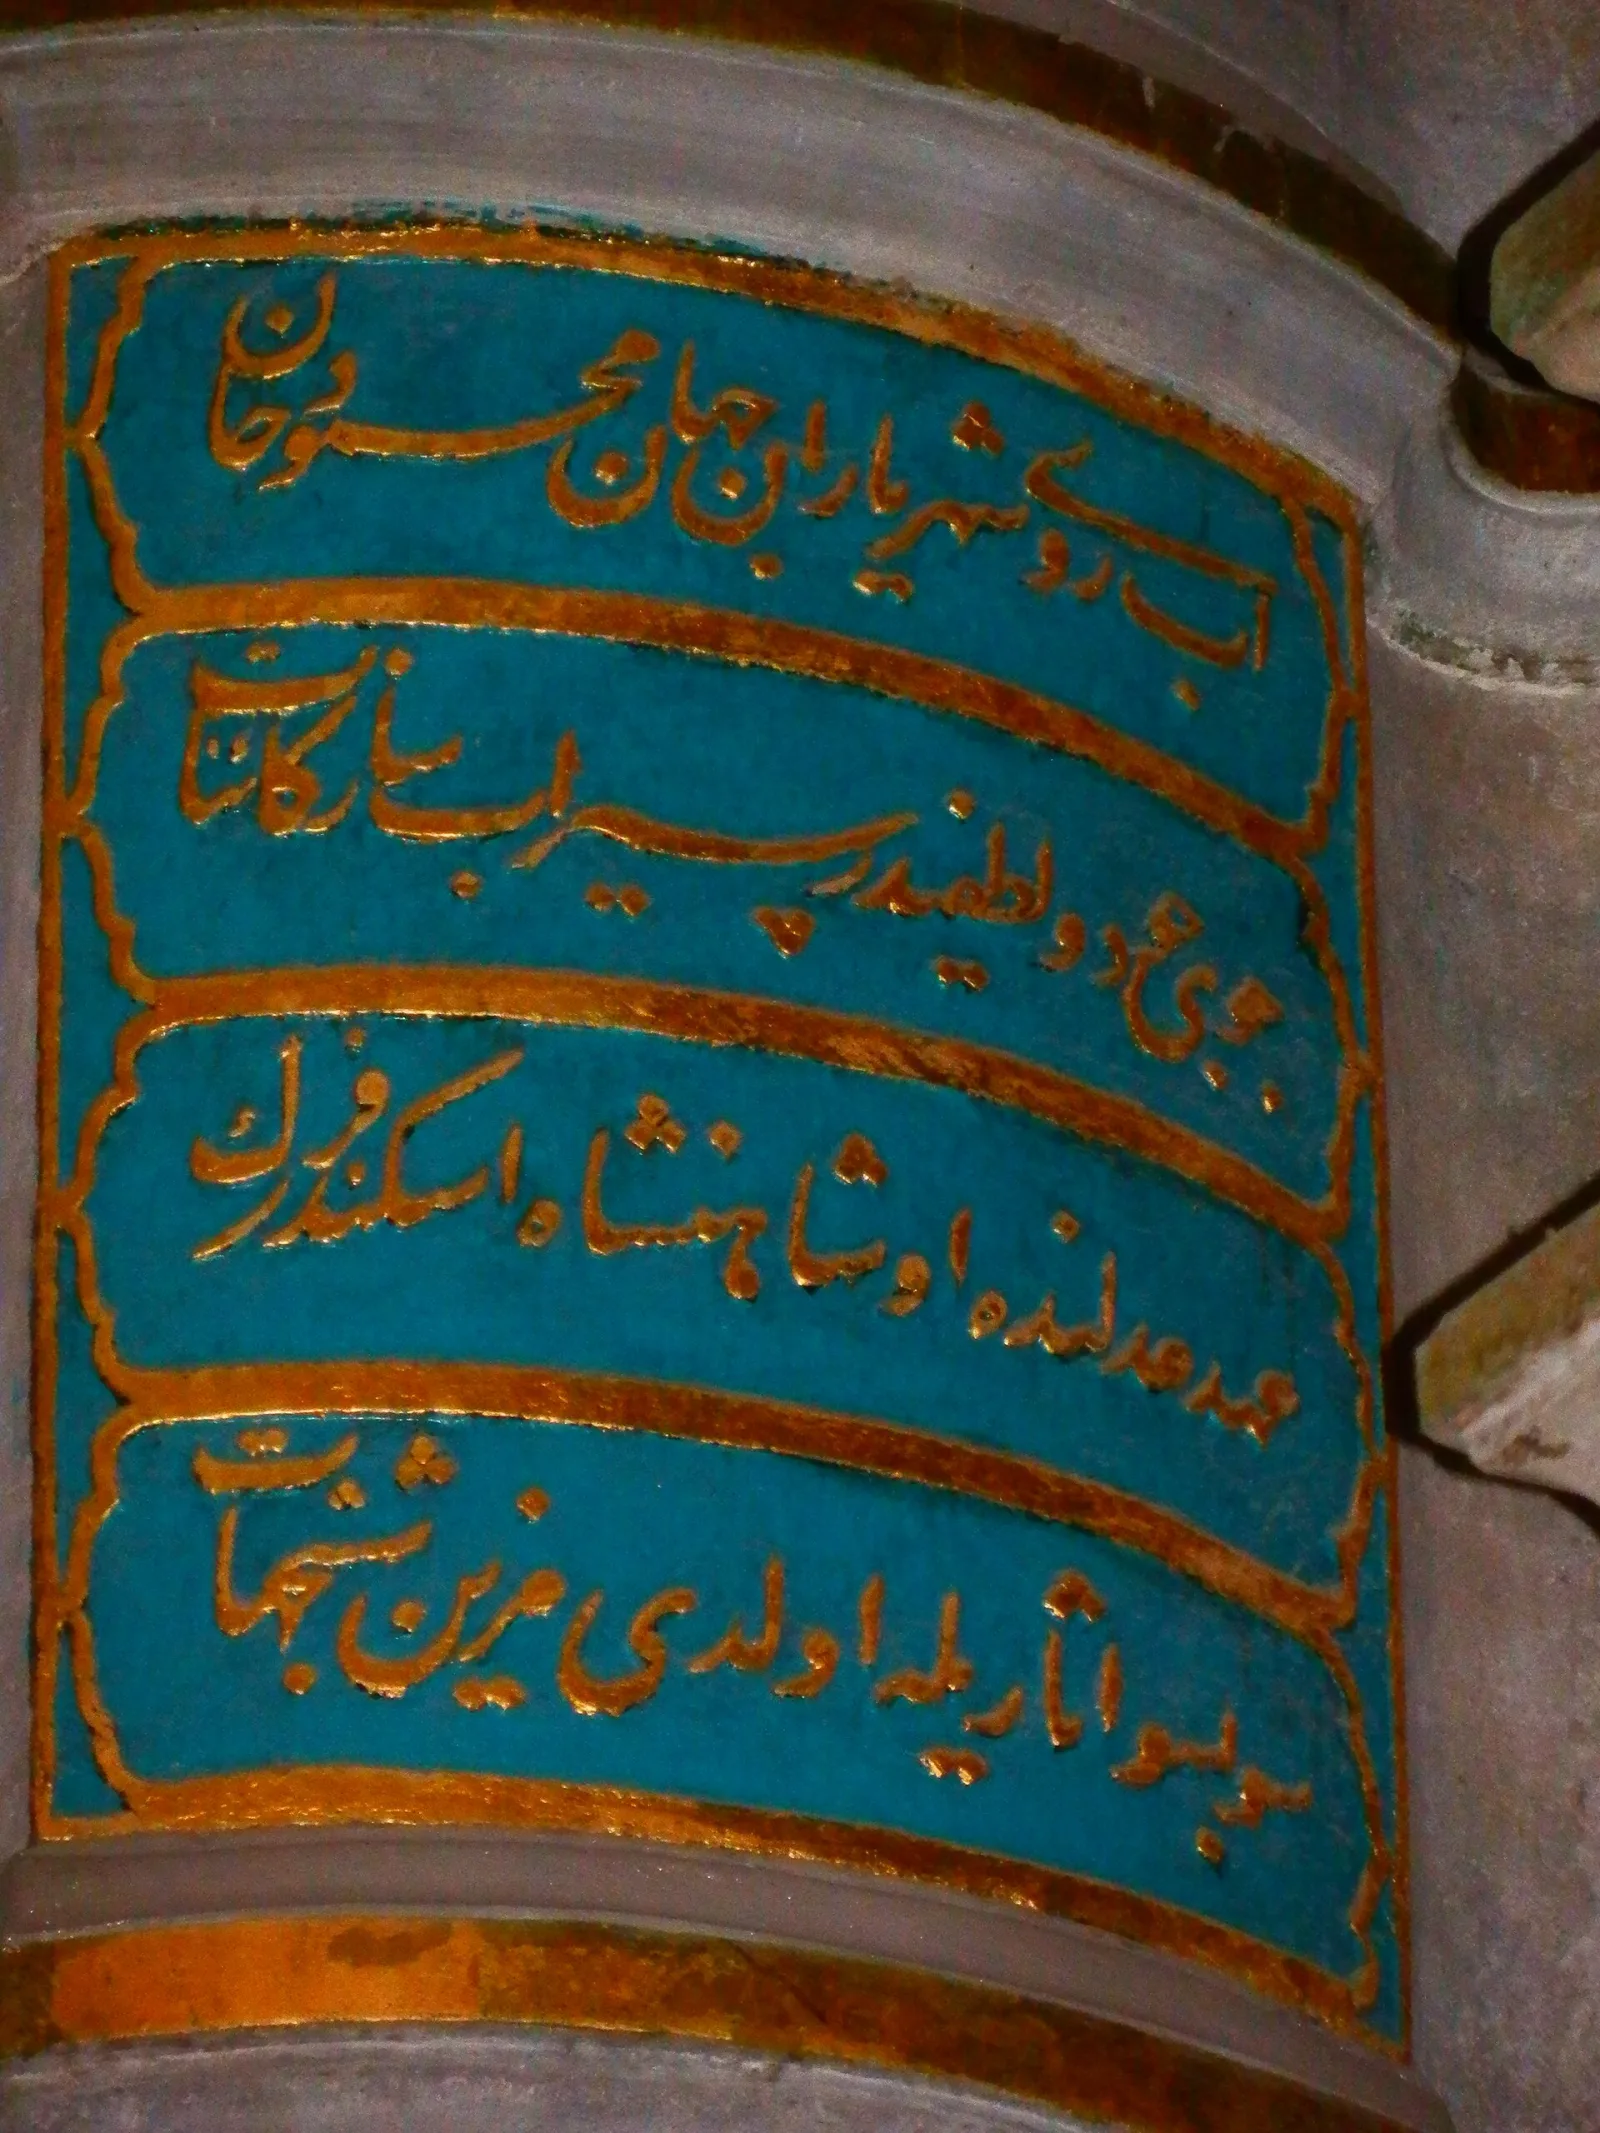 آب روے شهرياران جهان محمود خان
جوى جود و لطفيدر پيسراب ساز كائنات
عهد عدلنده او شاهنشاه اسكندر فرك
بو سبو اثاريله اولدى مزين ششجهات